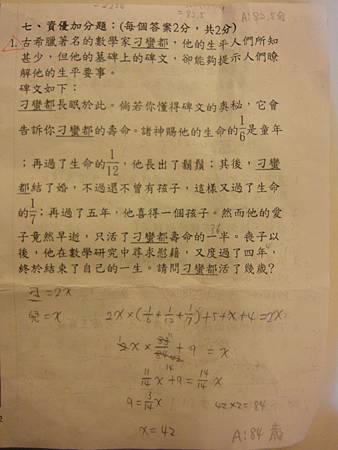 A:83.5分
七、資優加分題：(每個答案2分，共2分)
1.古希臘著名的數學家刁蠻都，他的生平人們所知
甚少，但他的墓碑上的碑文，卻能夠提示人們瞭
解他的生平要事。
碑文如下：
刁蠻都長眠於此。倘若你懂得碑文的奧秘，它會
告訴你刁蠻都的壽命。諸神賜他的生命的1/6是童年
；再過了生命的1/12，他長出了鬍鬚；其後，刁蠻
都結了婚，不過還不曾有孩子，這樣又過了生命
的1/7；再過了五年，他喜得一個孩子。然而他的愛
子竟然早逝，只活了刁蠻都壽命的一半。喪子以
後，他在數學研究中尋求慰藉，又度過了四年，
終於結束了自己的一生。請問刁蠻都活了幾歲？
刁=2x
兒=x 2x×(1/6+1/12+1/7)+5+x+4=2x
+9=x
14
11/14x+9=14/14x
9=3/14x 42×2=84
x=42 A:84歲